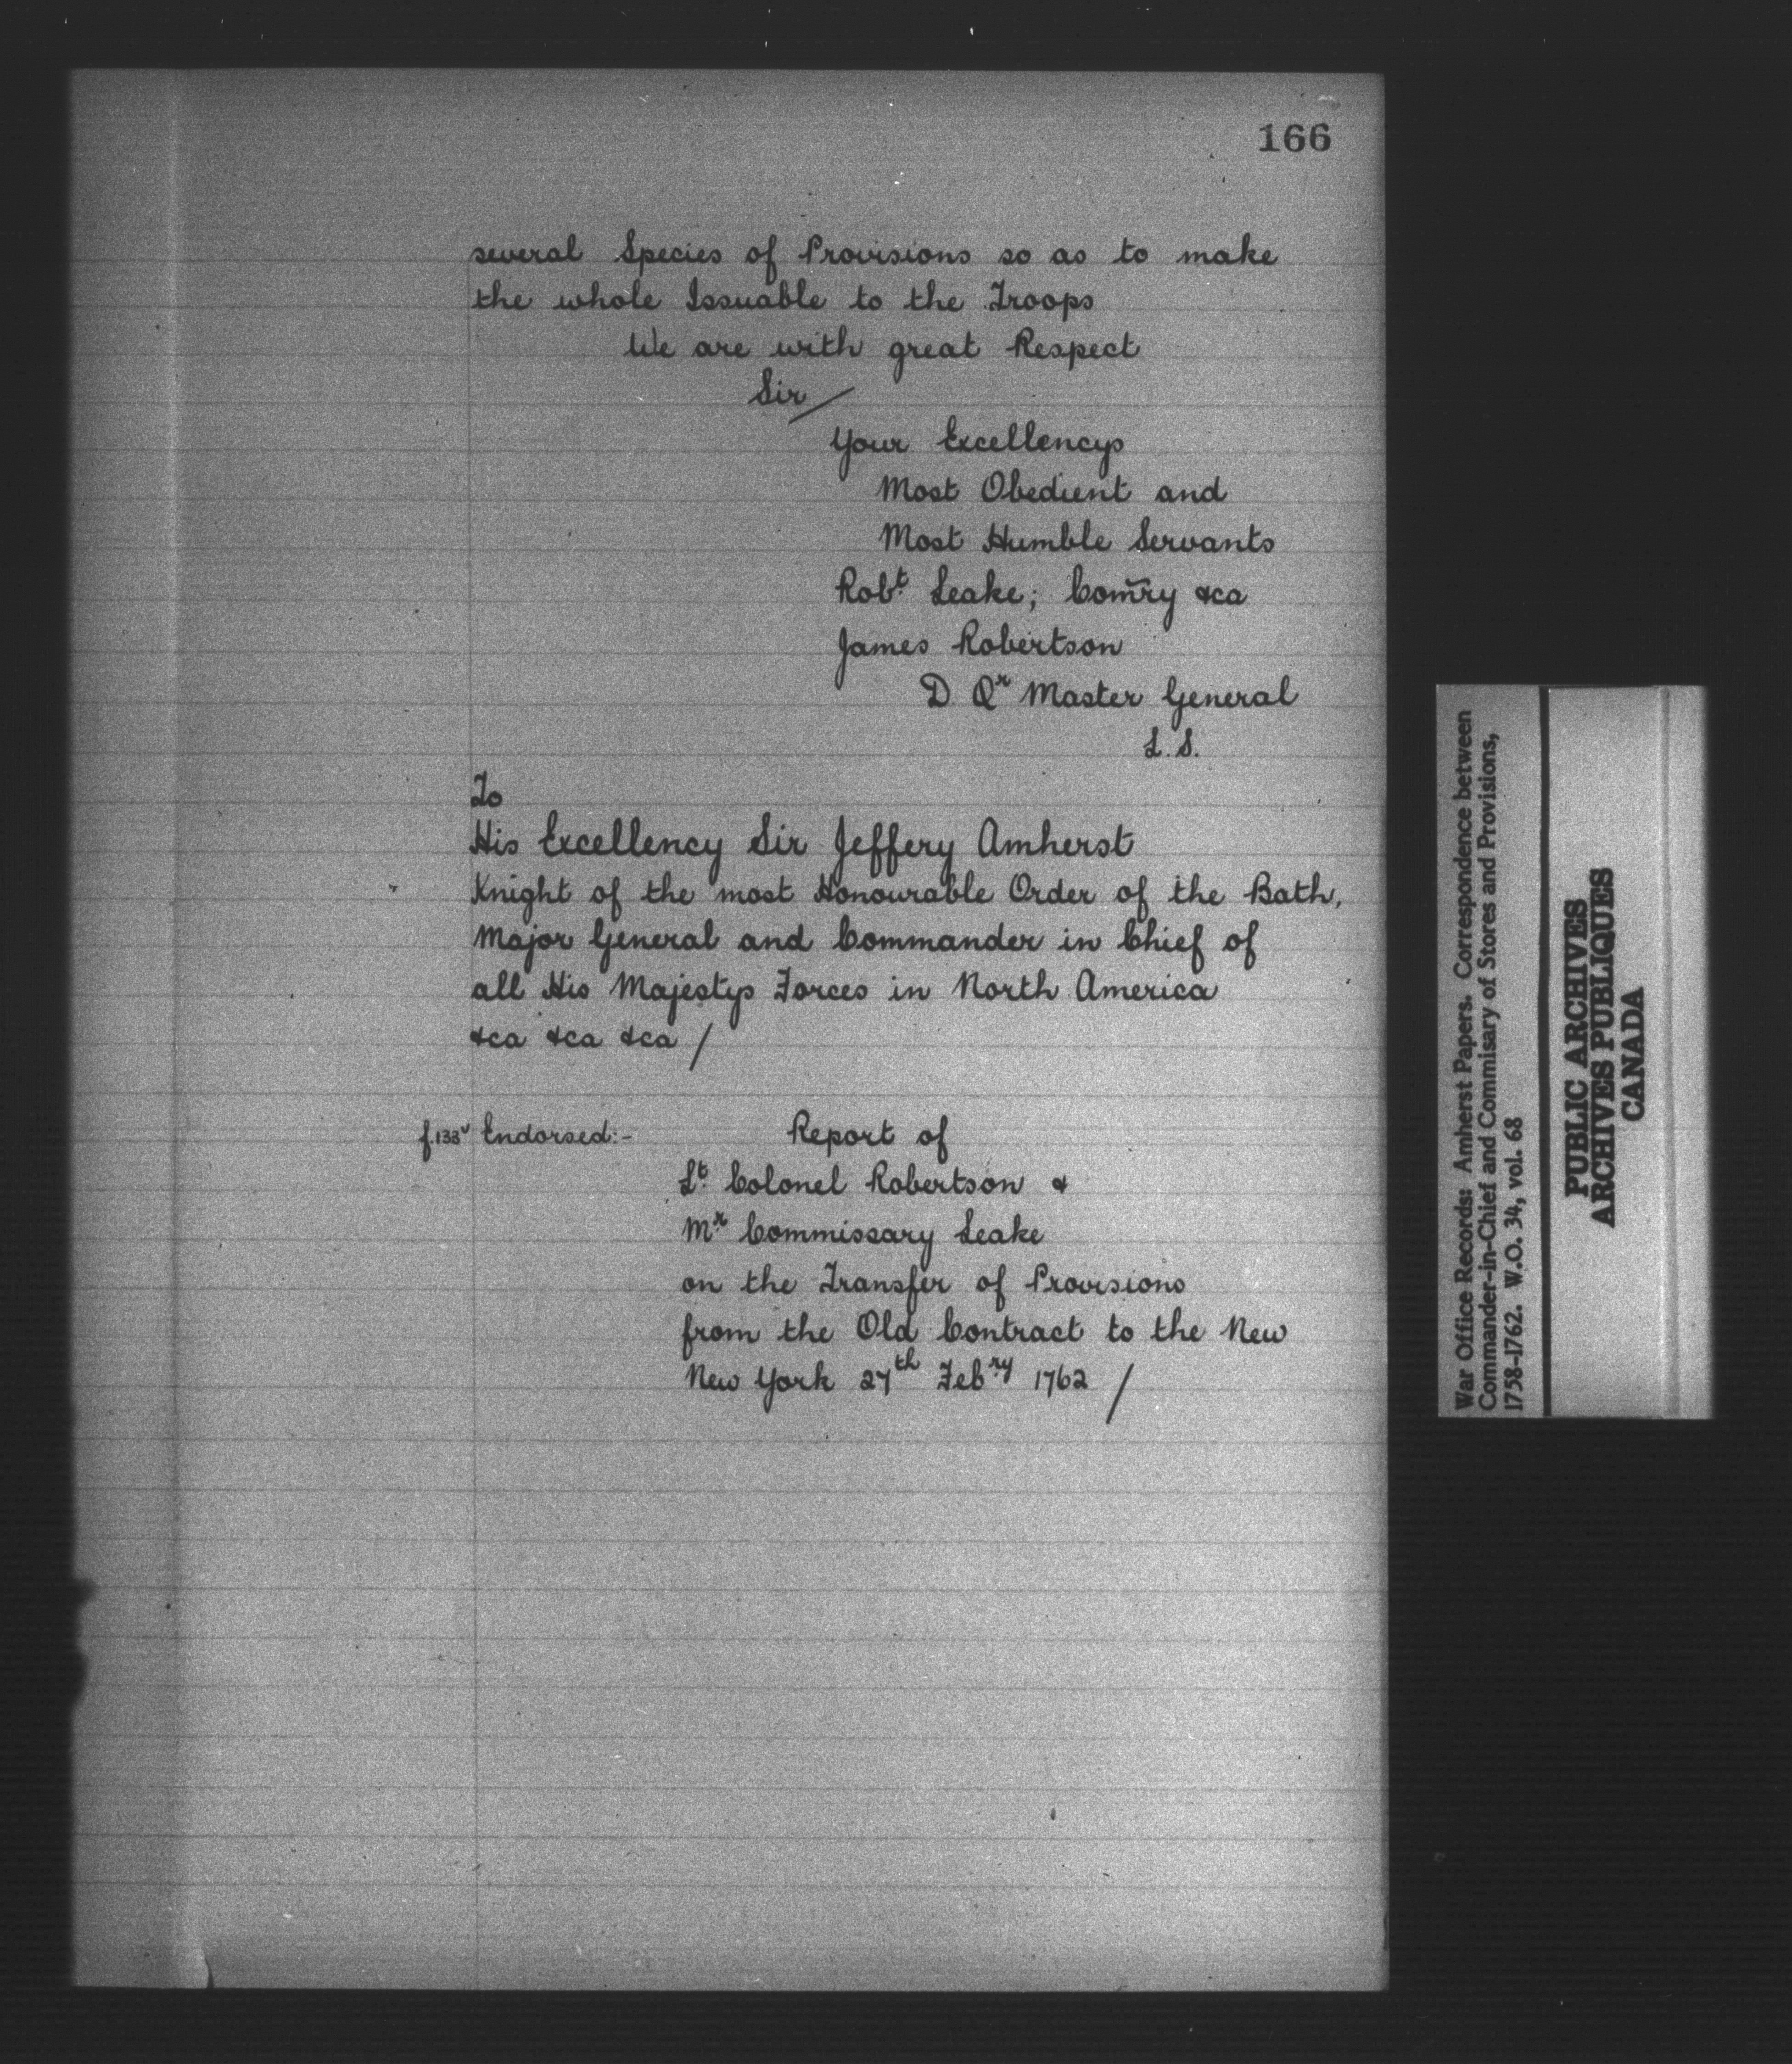 166
several Species of Provisions so as to make
the whole Issuable to the Troops
We are with great Respect
Sir /
Your Excellencys
Most Obedient and
Most Humble Servants
Robt. Leake; Com̅ry &ca
James Robertson
D. Qr Master General
L. S.
To
His Excellency Sir Jeffery Amherst
Knight of the most Honourable Order of the Bath,
Major General and Commander in Chief of
all His Majestys Forces in North America
&ca &ca &ca /
f.133v Endorsed:- Report of
Lt. Colonel Robertson &
Mr. Commissary Leake
on the Transfer of Provisions
from the Old Contract to the New
New York 27th Febry 1762 /
War Office Records: Amherst Papers. Correspondence between
Commander-in-Chief and Commisary of Stores and Provisions,
1758-1762. W.O. 34, vol. 68
PUBLIC ARCHIVES
ARCHIVES PUBLIQUES
CANADA